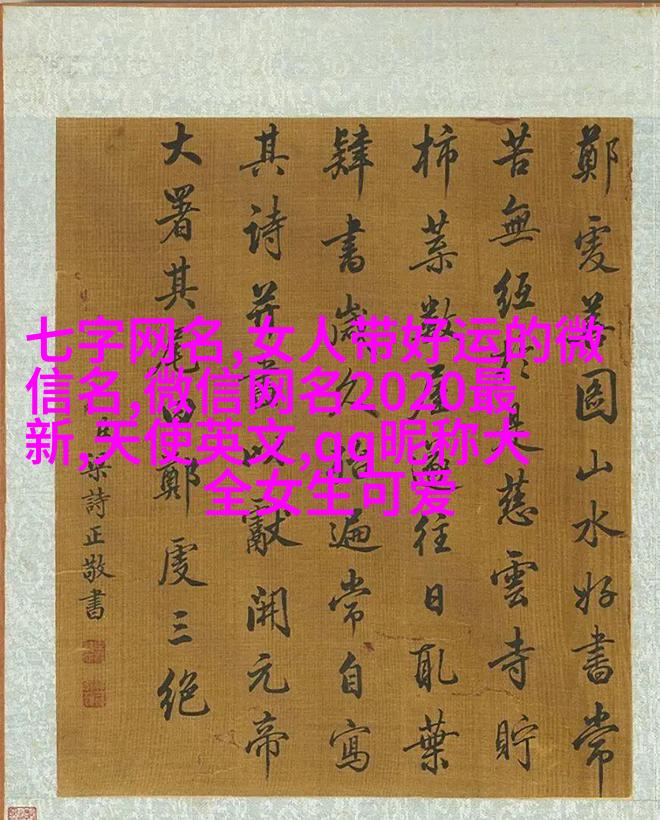 七字网名,女人带好运的微
信名,微信网名2020最
新,天使英文,qq昵称大
全女生可爱
鄭虔善圖山水好書常
苦無紙於是慈雲寺貯
柿葉數屋遂往日取葉
肄書歲久殆遍常自寫
其詩并畫以獻開元帝
大署其尾曰鄭虔三絕
臣梁詩正敬書